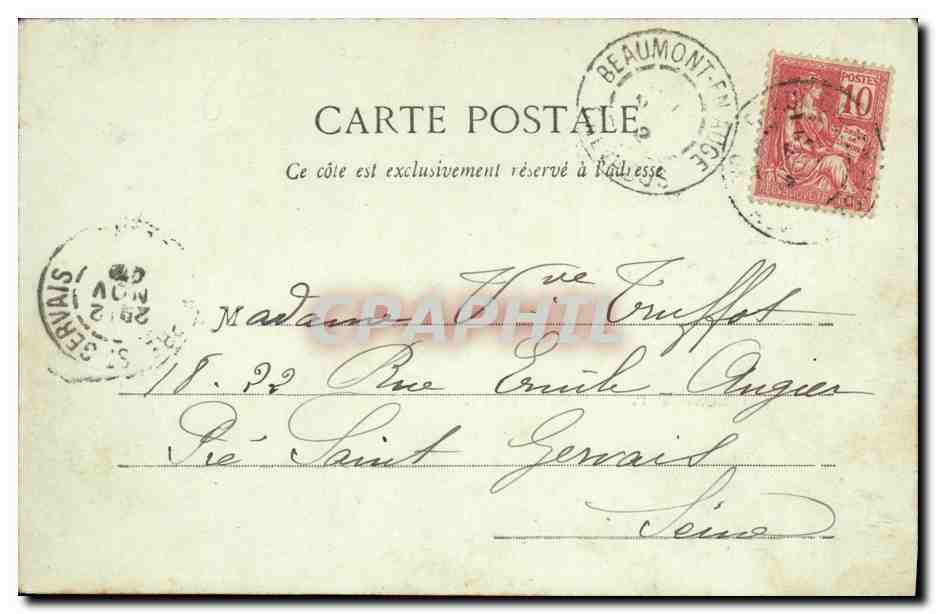 BEAUMONT-EN-AUGE
CALVADOS
POSTES
10
CARTE POSTALE
Ce côté est exclusivement réservé à l'adresse
ST GERVAIS
29
NOV
Madame Vve Truffot
CPAPHIL
18-22 Rue Emile Augier
Pré Saint Gervais
Seine